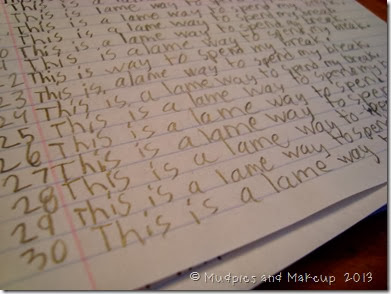 This is a lame way to spend my break
This is a lame way to spend my break
This is a lame way to spend my break
2 This is way to spend my break
23 This is a lame way to spend my break
24 This is a lame way to spend my break
25 This is a lame way to spend my
26 This is a lame way to spend
27 This is a lame way to spend
28 This is a lame way to spe
29 This is a lame way to spen
30 This is a lame way
© Mudpies and Makeup 2013